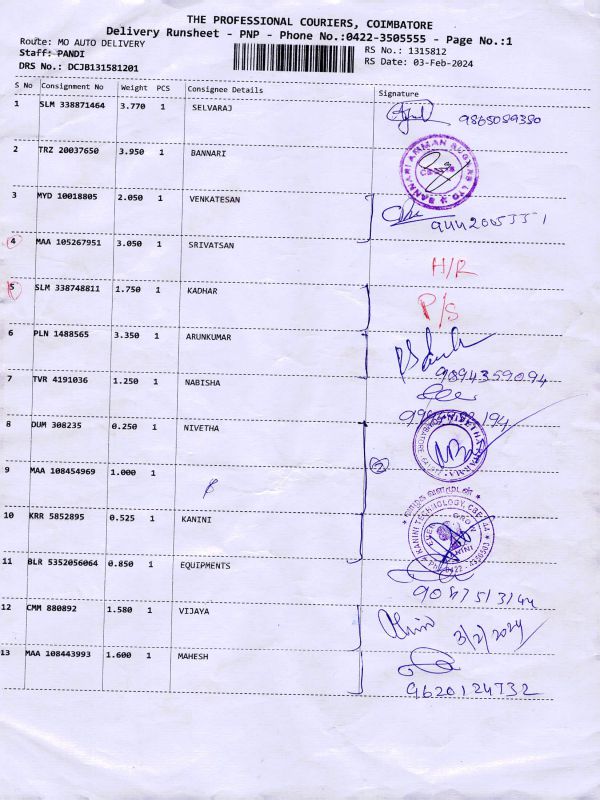 THE PROFESSIONAL COURIERS, COIMBATORE
Delivery Runsheet - PNP - Phone No.:0422-3505555 - Page No.:1
Route: MO AUTO DELIVERY
Staff: PANDI
DRS No.: DCJB131581201
RS No.: 1315812
RS Date: 03-Feb-2024
S No Consignment No Weight PCS Consignee Details Signature
1 SLM 338871464 3.770 1 SELVARAJ 9865089380
2 TRZ 20037650 3.950 1 BANNARI
BANNARI AMMAN SUGARS LTD
3 MYD 10018805 2.050 1 VENKATESAN
4 MAA 105267951 3.050 1 SRIVATSAN H/R
5 SLM 338748811 1.750 1 KADHAR P/S
6 PLN 1488565 3.350 1 ARUNKUMAR
9894359094
7 TVR 4191036 1.250 1 NABISHA
8 DUM 308235 0.250 1 NIVETHA
9 MAA 108454969 1.000 1
2
10 KRR 5852895 0.525 1 KANINI
KANINI TECHNOLOGY, CBE
11 BLR 5352056064 0.850 1 EQUIPMENTS
12 CMM 880892 1.580 1 VIJAYA 3/2/2024
13 MAA 108443993 1.600 1 MAHESH
9620124732